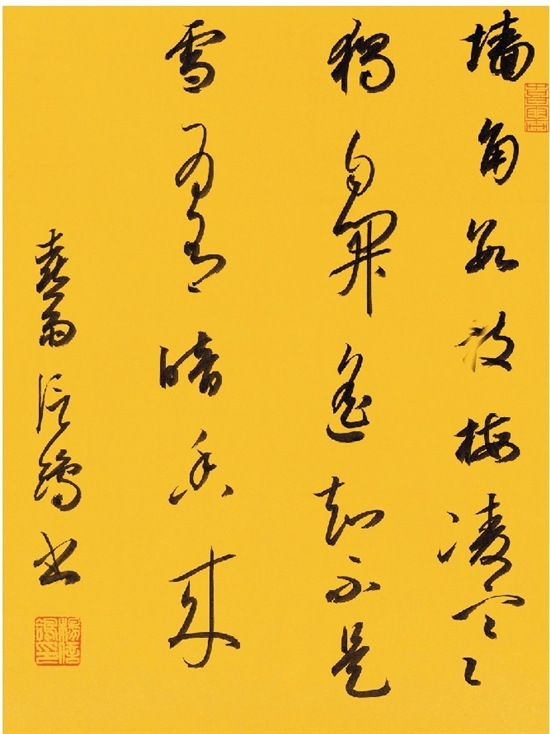 墙角数枝梅凌寒
獨自開遥知不是
雪为有暗香来
雨书